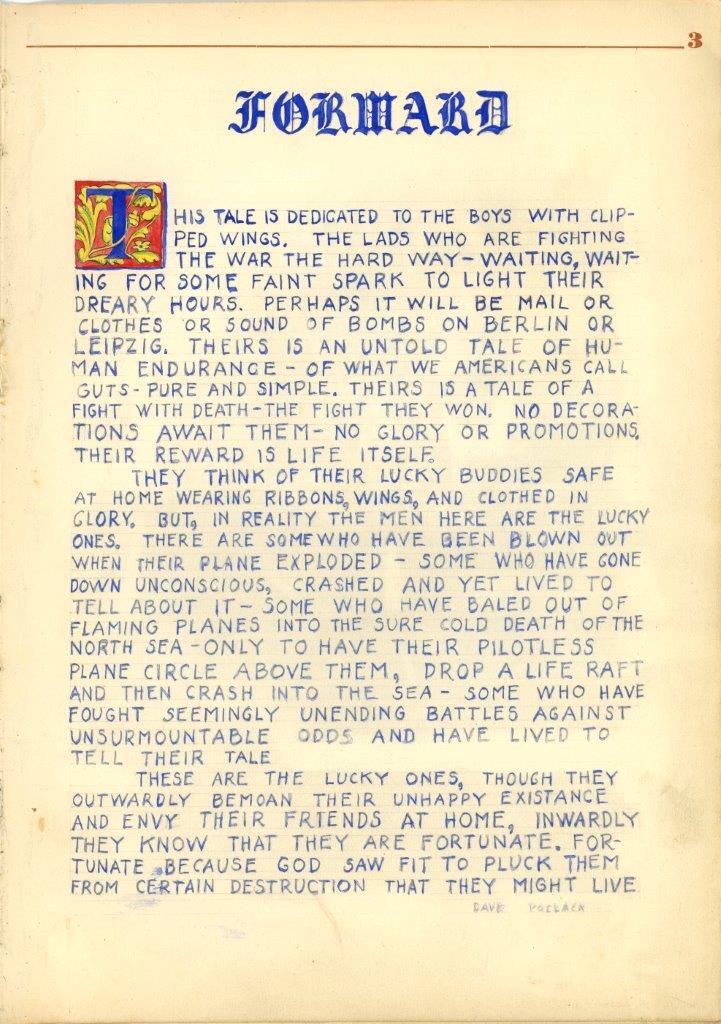 3
FORWARD
THIS TALE IS DEDICATED TO THE BOYS WITH CLIP-
PED WINGS. THE LADS WHO ARE FIGHTING
THE WAR THE HARD WAY-WAITING, WAIT-
ING FOR SOME FAINT SPARK TO LIGHT THEIR
DREARY HOURS. PERHAPS IT WILL BE MAIL OR
CLOTHES OR SOUND OF BOMBS ON BERLIN OR
LEIPZIG. THEIRS IS AN UNTOLD TALE OF HU-
MAN ENDURANCE - OF WHAT WE AMERICANS CALL
GUTS - PURE AND SIMPLE. THEIRS IS A TALE OF A
FIGHT WITH DEATH-THE FIGHT THEY WON. NO DECORA-
TIONS AWAIT THEM- NO GLORY OR PROMOTIONS.
THEIR REWARD IS LIFE ITSELF.
THEY THINK OF THEIR LUCKY BUDDIES SAFE
AT HOME WEARING RIBBONS, WINGS, AND CLOTHED IN
GLORY. BUT, IN REALITY THE MEN HERE ARE THE LUCKY
ONES. THERE ARE SOME WHO HAVE BEEN BLOWN OUT
WHEN THEIR PLANE EXPLODED - SOME WHO HAVE GONE
DOWN UNCONSCIOUS, CRASHED AND YET LIVED TO
TELL ABOUT IT - SOME WHO HAVE BALED OUT OF
FLAMING PLANES INTO THE SURE COLD DEATH OF THE
NORTH SEA - ONLY TO HAVE THEIR PILOTLESS
PLANE CIRCLE ABOVE THEM, DROP A LIFE RAFT
AND THEN CRASH INTO THE SEA - SOME WHO HAVE
FOUGHT SEEMINGLY UNENDING BATTLES AGAINST
UNSURMOUNTABLE ODDS AND HAVE LIVED TO
TELL THEIR TALE
THESE ARE THE LUCKY ONES, THOUGH THEY
OUTWARDLY BEMOAN THEIR UNHAPPY EXISTANCE
AND ENVY THEIR FRIENDS AT HOME, INWARDLY
THEY KNOW THAT THEY ARE FORTUNATE. FOR-
TUNATE BECAUSE GOD SAW FIT TO PLUCK THEM
FROM CERTAIN DESTRUCTION THAT THEY MIGHT LIVE
DAVE POLLACK